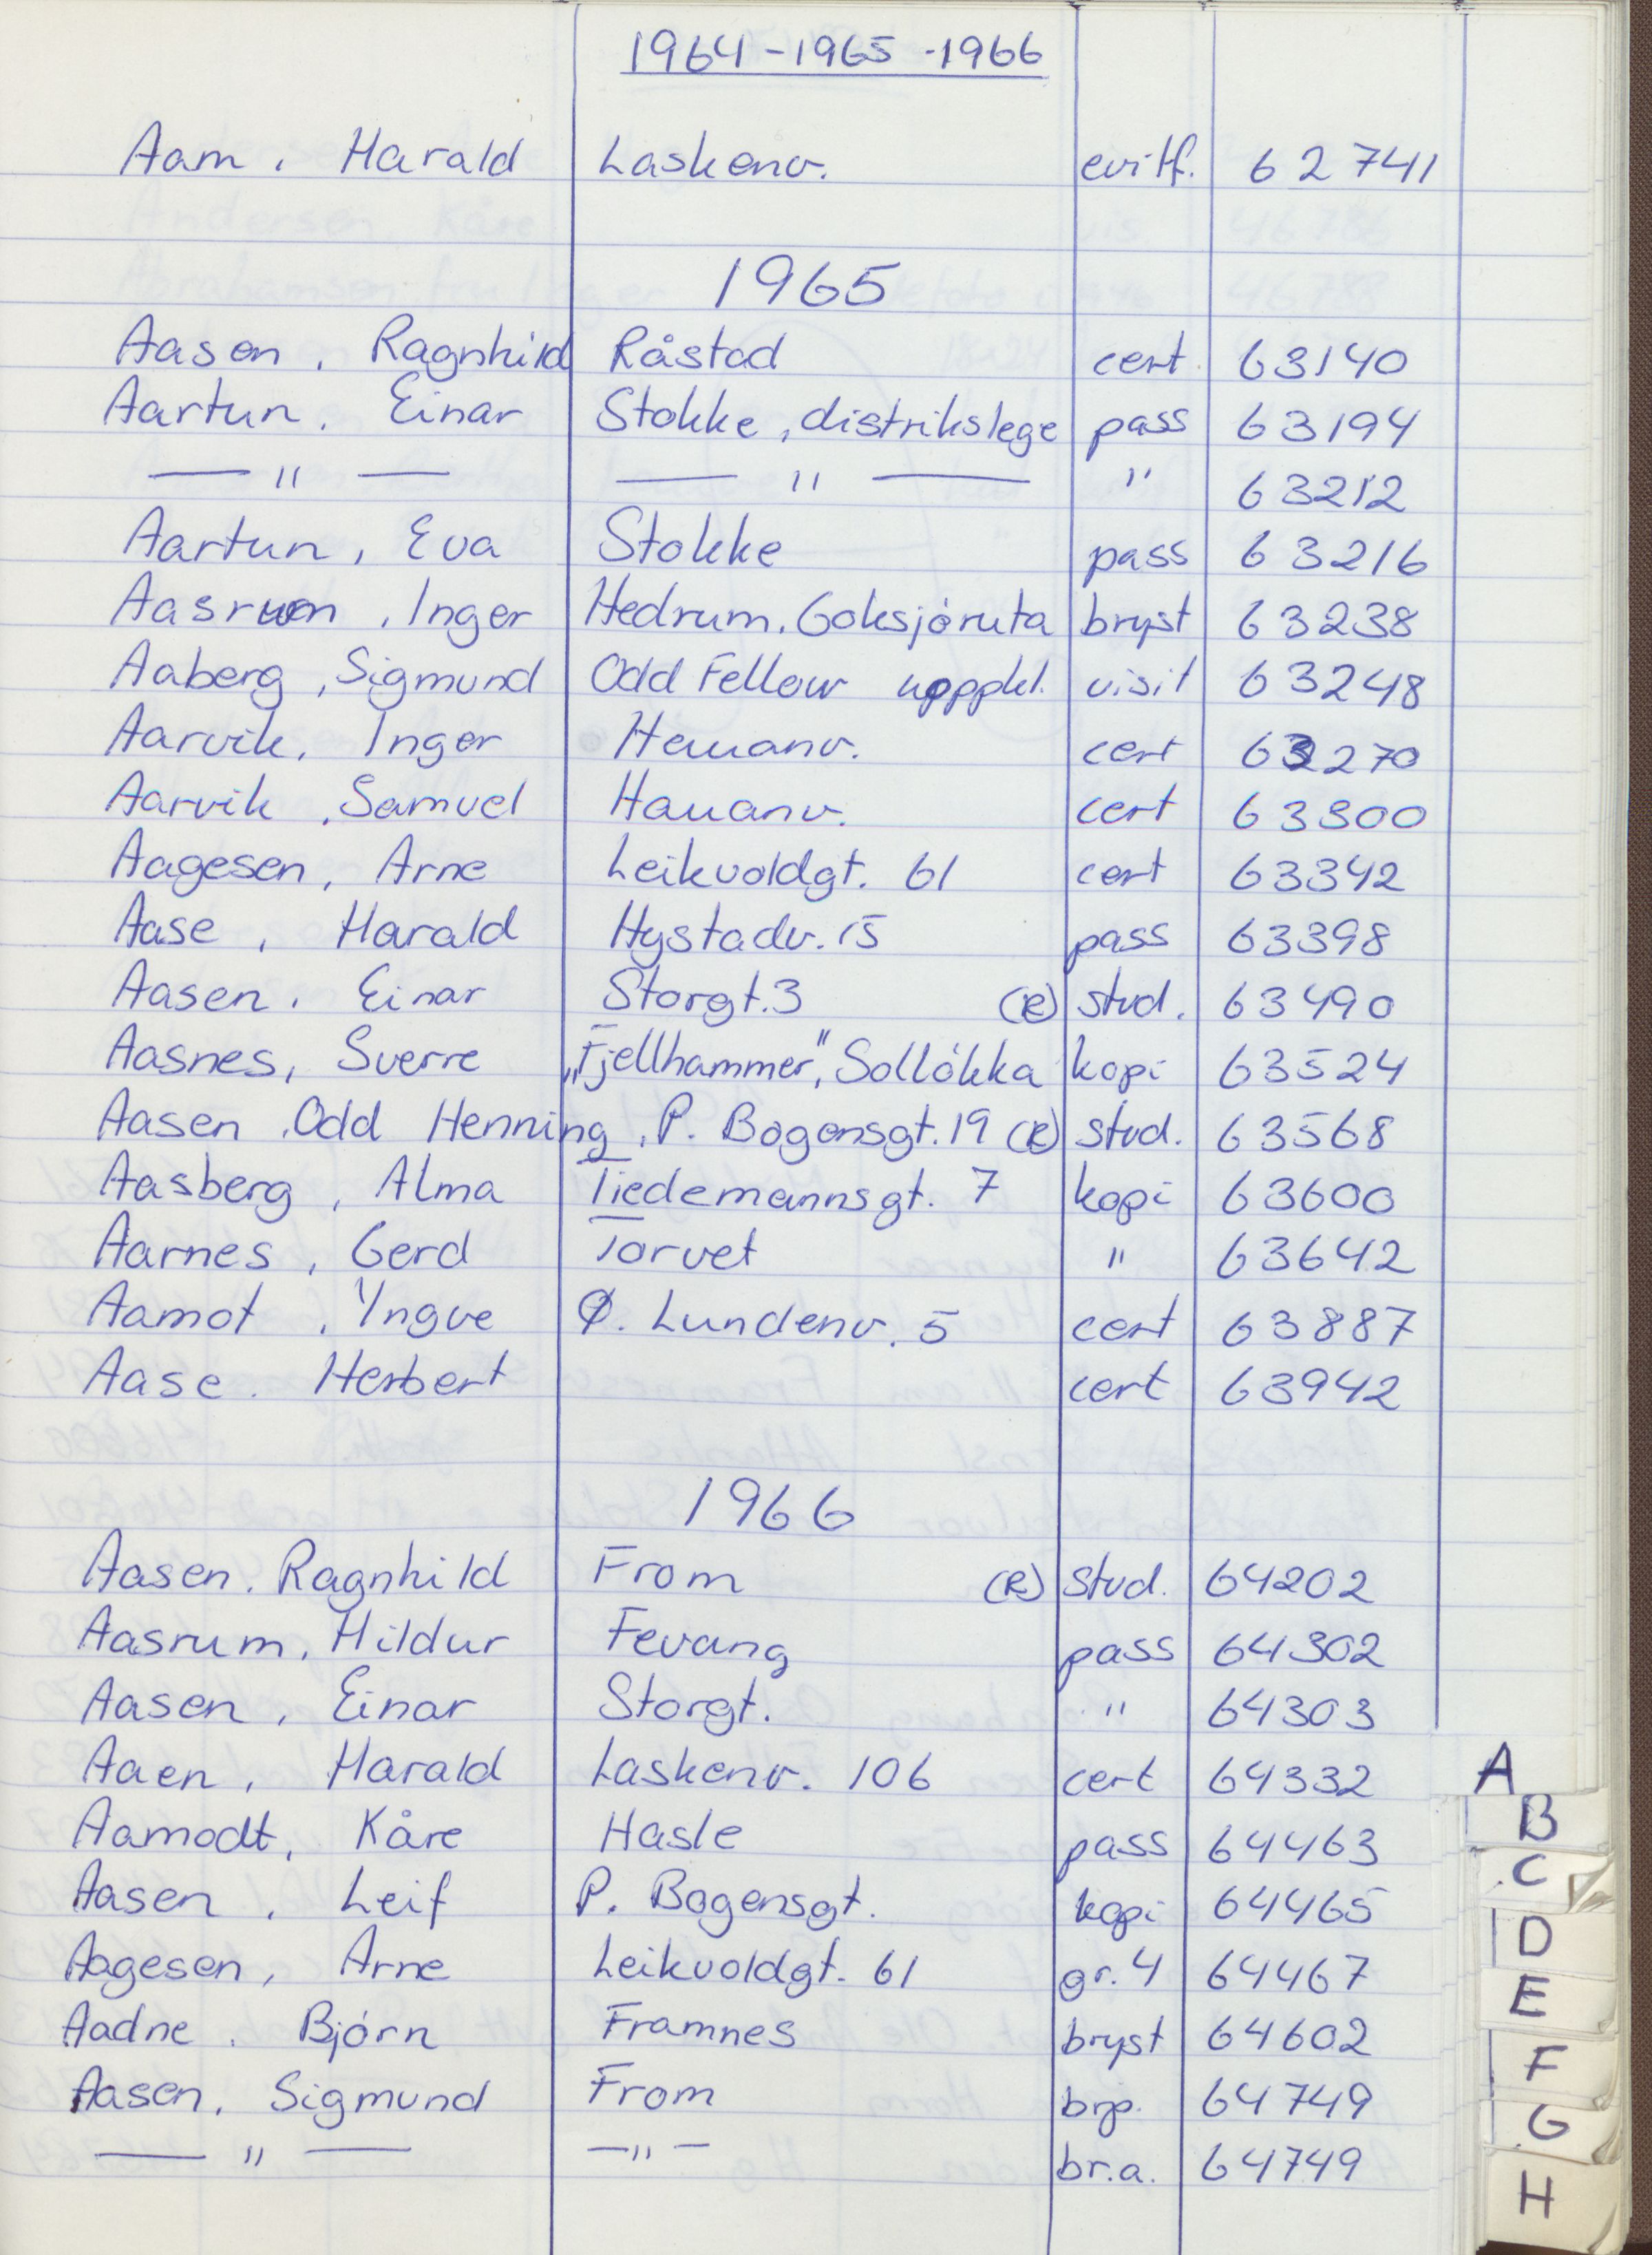 1964-1965-1966
Aam, Harald Laskenv. 62741
1965
Aasen, Ragnhild Råstad cert. 63140
Aartun, Einar Stokke, distrikslege pass 63194
— " — — " — " 63212
Aartun, Eva Stokke pass 63216
Inger Hedrum. Goksjøruta bryst 63238
Aaberg, Sigmund Odd Fellow visit 63248
Aarvik, Inger cert 63270
Aarvik, Samuel Hauanv. cert 63300
Aagesen, Arne Leikvoldgt. 61 cert 63342
Aase, Harald Hystadv. 15 pass 63398
Aasen, Einar Storgt. 3 (R) stud. 63490
Aasnes, Sverre „Fjellhammer", Solløkka kopi 63524
Aasen, Odd Henning, P. Bogensgt. 19 (R) stud. 63568
Aasberg, Alma Tiedemannsgt. 7 kopi 63600
Aarnes, Gerd Torvet " 63642
Aamot, Yngve Ø. Lundenv. 5 cert 63887
Aase. Herbert cert 63942
1966
Aasen. Ragnhild From (R) stud. 64202
Aasrum, Hildur Fevang pass 64302
Aasen, Einar Storgt. " 64303
Aaen, Harald Laskenv. 106 cert 64332
Aamodt, Kåre Hasle pass 64463
Aasen, Leif P. Bogensgt. kopi 64465
Aagesen, Arne Leikvoldgt. 61 gr. 4 64467
Aadne. Bjørn Framnes bryst 64602
Aasen, Sigmund From brp. 64749
— " — — " — br.a. 64749
A
B
C
D
E
F
G
H